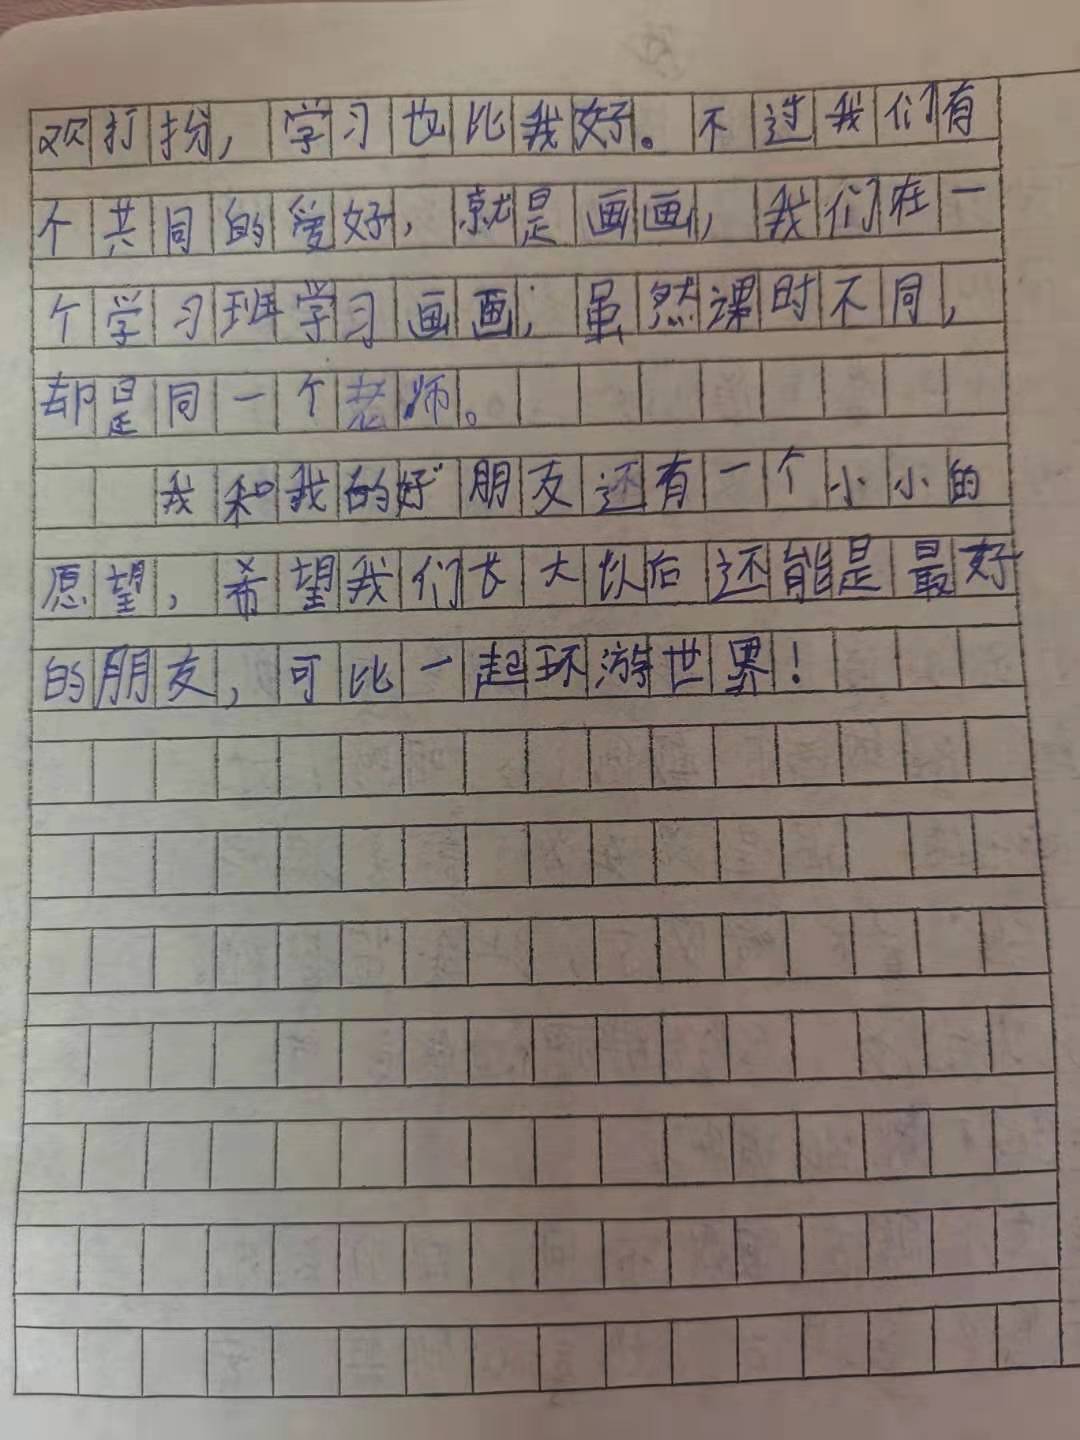 欢打扮，学习也比我好。不过我们有
个共同的爱好，就是画画，我们在一
个学习班学习画画，虽然课时不同，
却是同一个老师。
我和我的好朋友还有一个小小的
愿望，希望我们长大以后还能是最好
的朋友，可比一起环游世界！